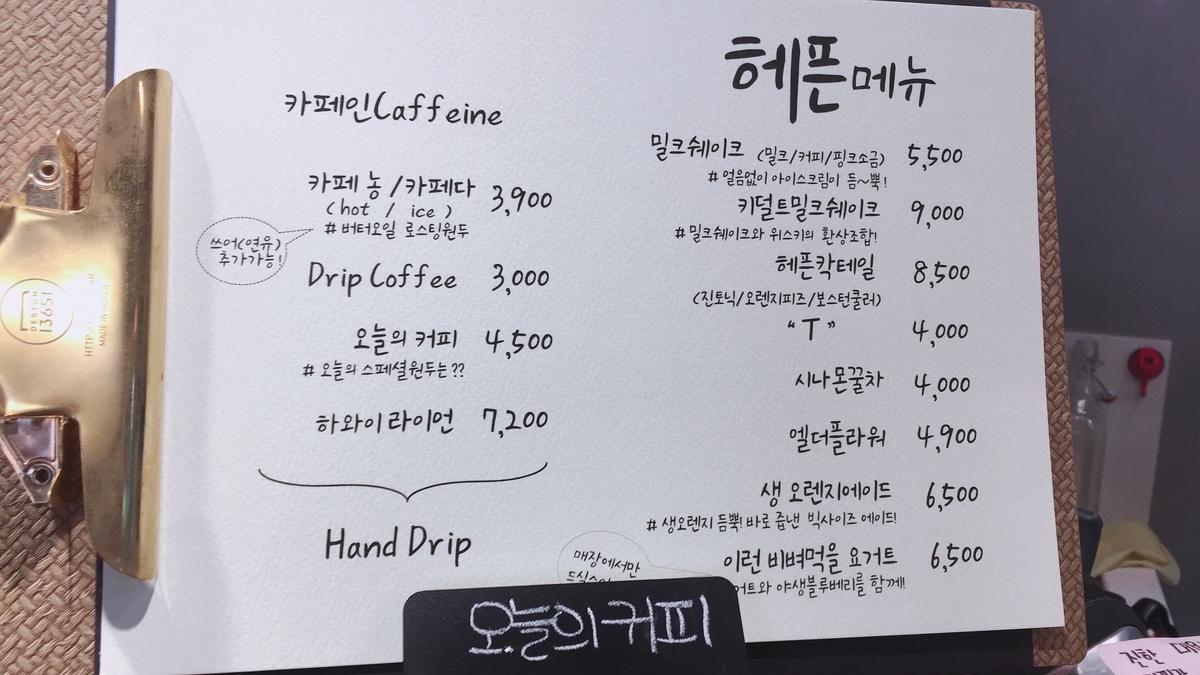 카페인 Caffeine
카페 농 / 카페다 3,900
(hot / ice)
# 버터오일 로스팅원두
쓰어(연유)
추가가능!
Drip Coffee 3,000
오늘의 커피 4,500
# 오늘의 스페셜원두는??
하와이 라이언 7,200
Hand Drip
헤픈 메뉴
밀크쉐이크 (밀크/커피/핑크소금) 5,500
# 얼음없이 아이스크림이 듬~뿍!
키덜트밀크쉐이크 9,000
# 밀크쉐이크와 위스키의 환상조합!
헤픈칵테일 8,500
(진토닉/오렌지피즈/보스턴쿨러)
“T” 4,000
시나몬꿀차 4,000
엘더플라워 4,900
생 오렌지에이드 6,500
# 생오렌지 듬뿍! 바로 즙낸 빅사이즈 에이드!
이런 비벼먹을 요거트 6,500
야생블루베리를 함께!
매장에서만
오늘의 커피
DESIGN
13651
MADE IN KOREA
진한